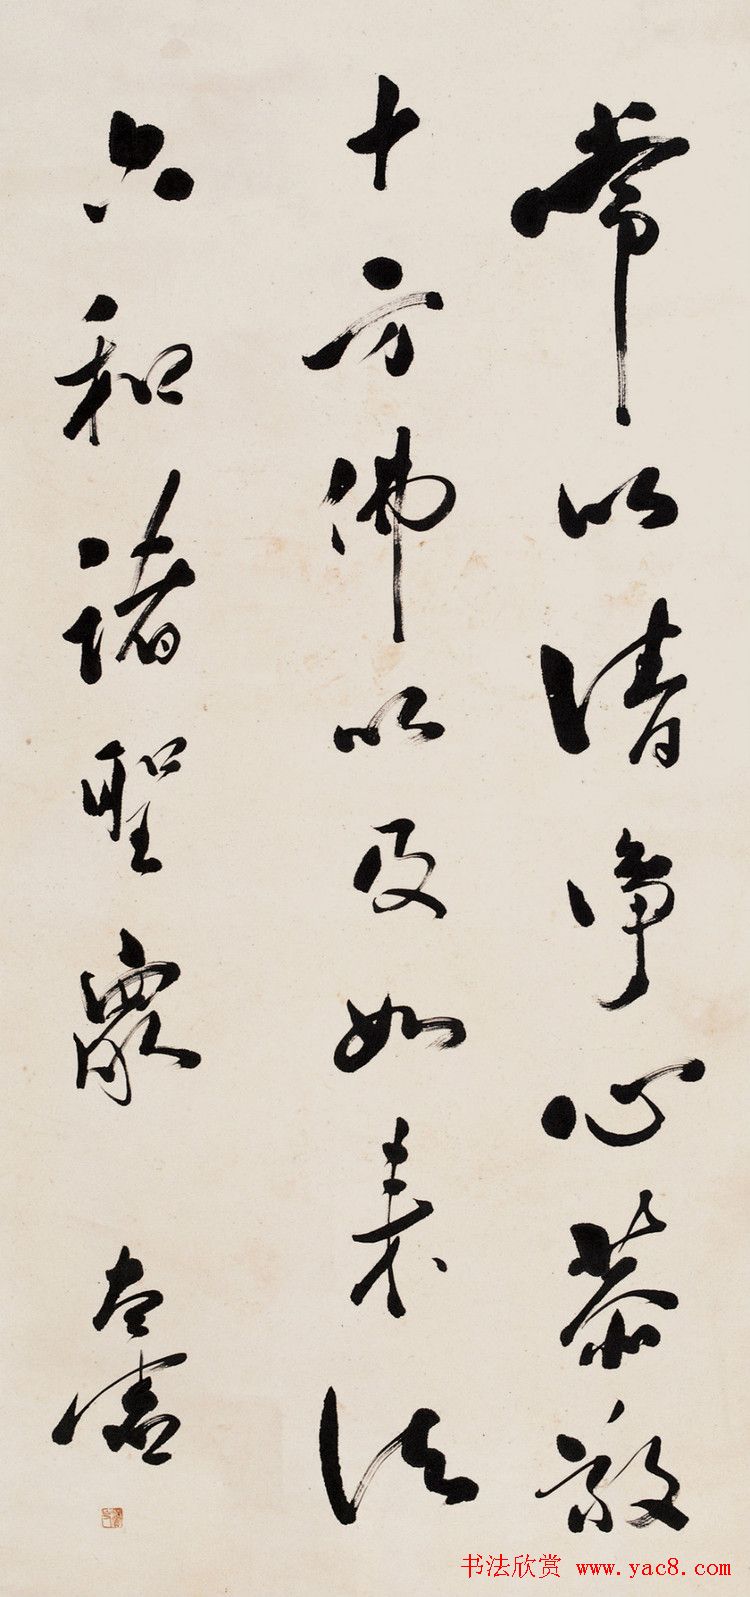 常以清净心恭敬
十方佛以及如来法
六和诸聖眾
太虚
书法欣赏 www.yac8.com